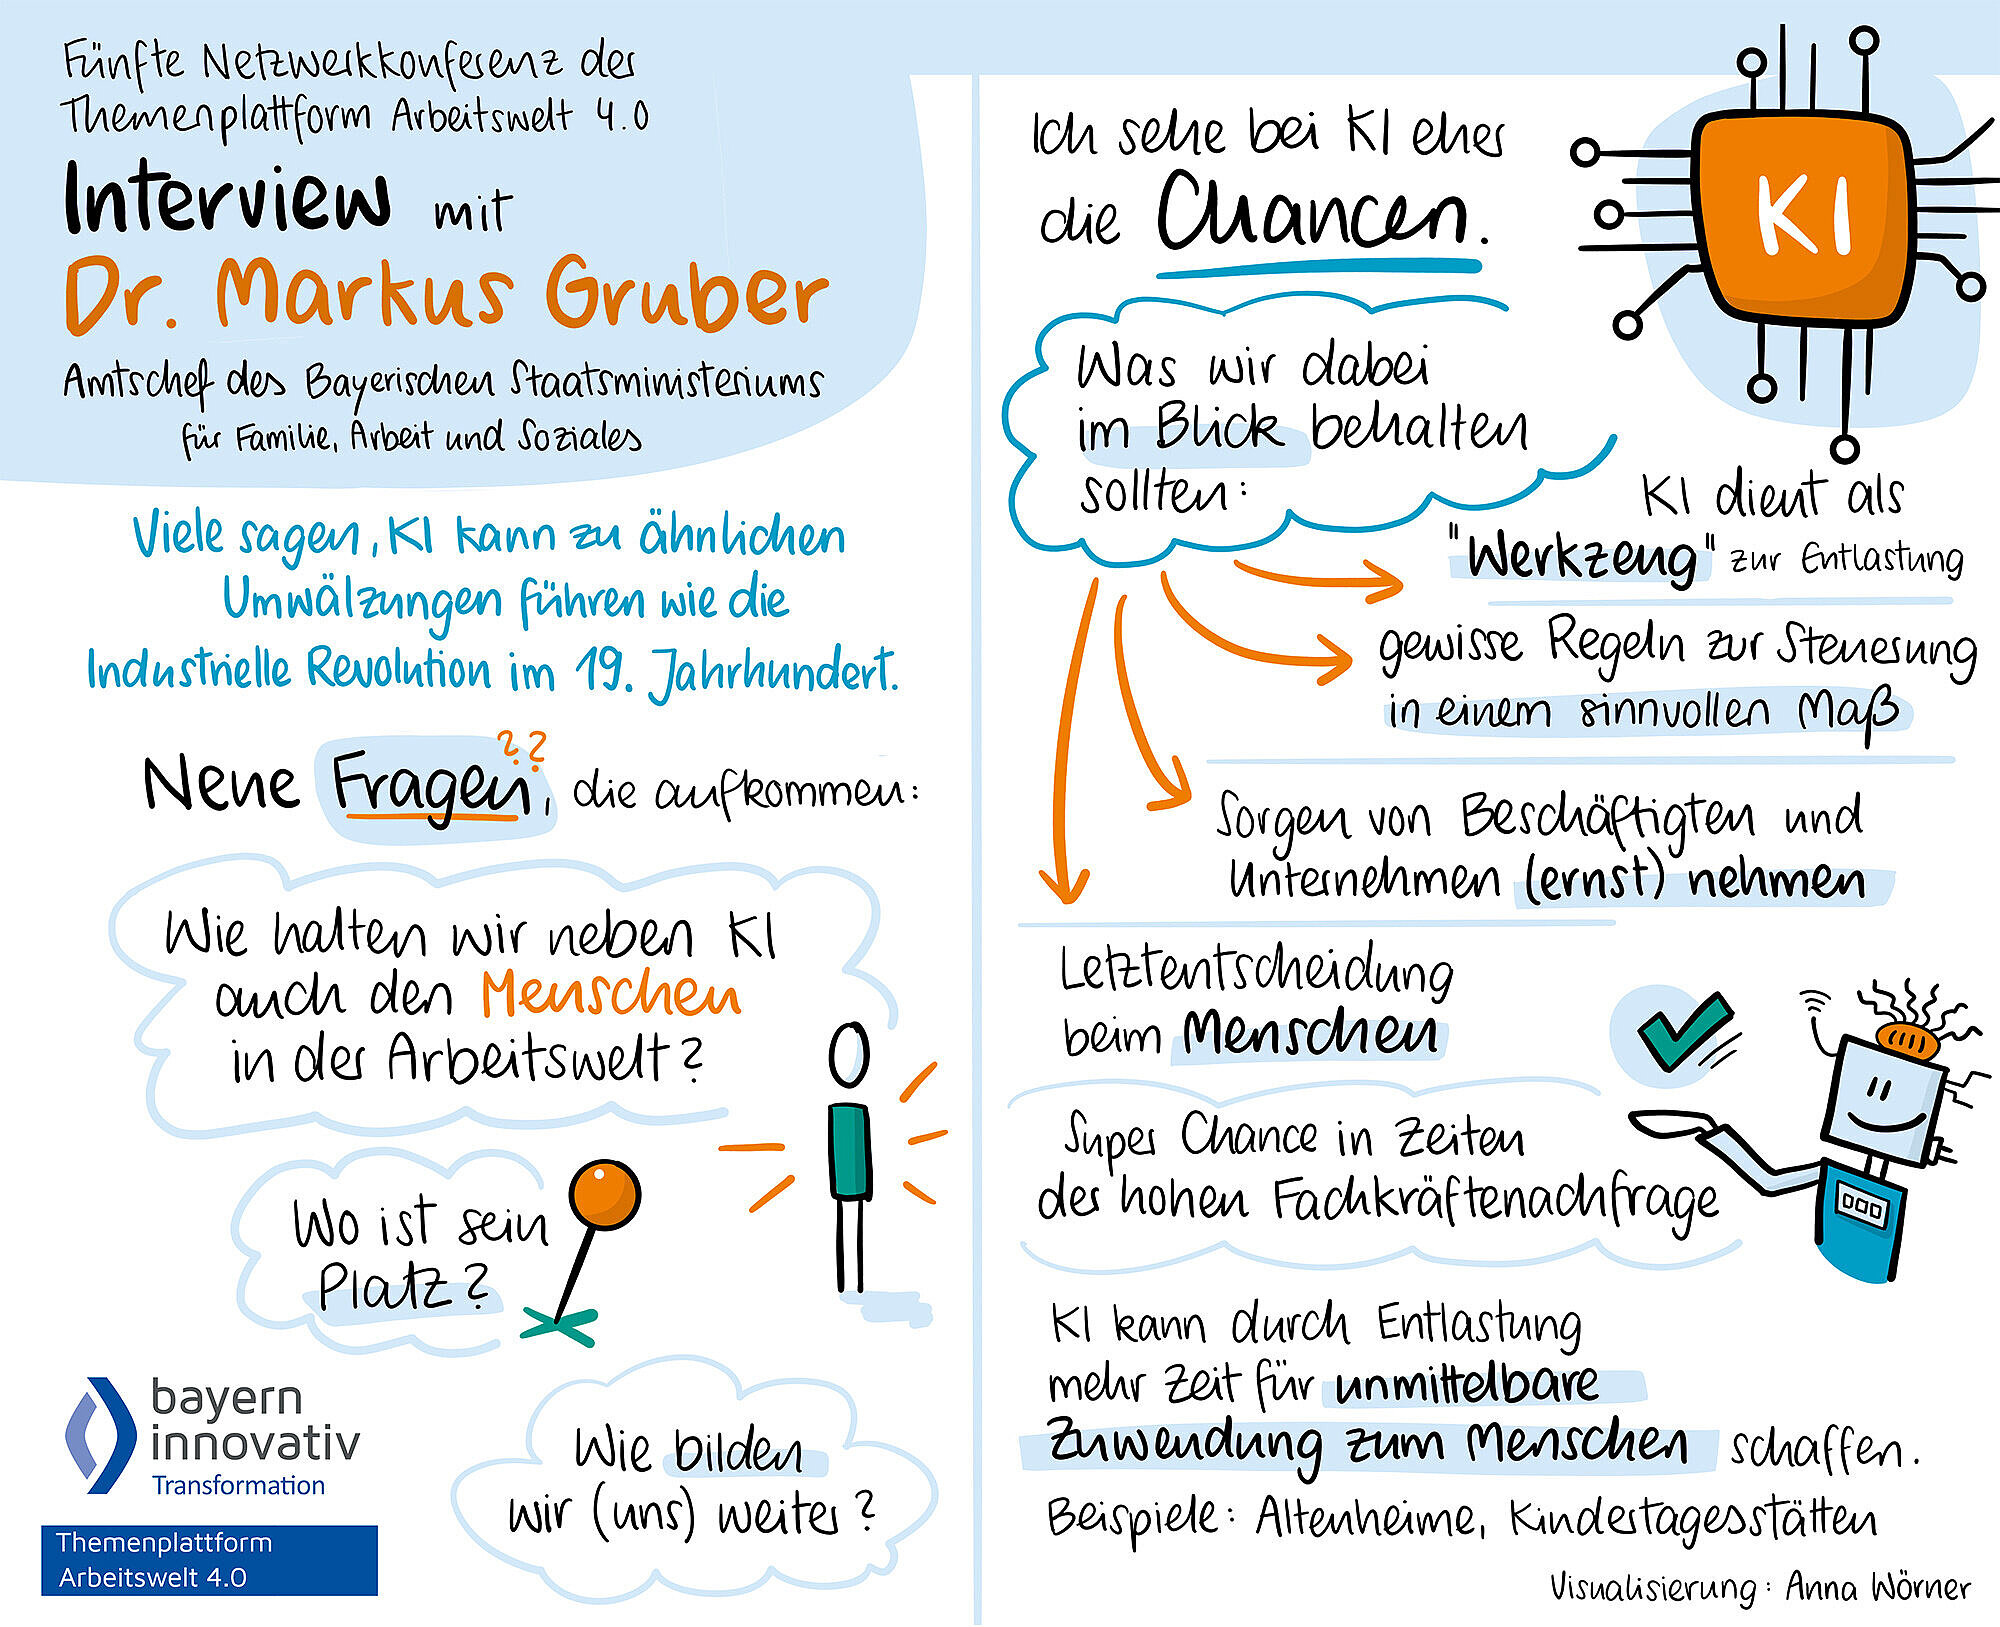 Fünfte Netzwerkkonferenz der
Themenplattform Arbeitswelt 4.0
Interview mit
Dr. Markus Gruber
Amtschef des Bayerischen Staatsministeriums
für Familie, Arbeit und Soziales
Viele sagen, KI kann zu ähnlichen
Umwälzungen führen wie die
Industrielle Revolution im 19. Jahrhundert.
Neue Fragen??, die aufkommen:
Wie halten wir neben KI
auch den Menschen
in der Arbeitswelt?
Wo ist sein
Platz?
Wie bilden
wir (uns) weiter?
bayern
innovativ
Transformation
Themenplattform
Arbeitswelt 4.0
Ich sehe bei KI eher
die Chancen.
KI
Was wir dabei
im Blick behalten
sollten:
KI dient als
"Werkzeug" zur Entlastung
gewisse Regeln zur Steuerung
in einem sinnvollen Maß
Sorgen von Beschäftigten und
Unternehmen (ernst) nehmen
Letztentscheidung
beim Menschen
Super Chance in Zeiten
der hohen Fachkräftenachfrage
KI kann durch Entlastung
mehr Zeit für unmittelbare
Zuwendung zum Menschen schaffen.
Beispiele: Altenheime, Kindertagesstätten
Visualisierung: Anna Wörner